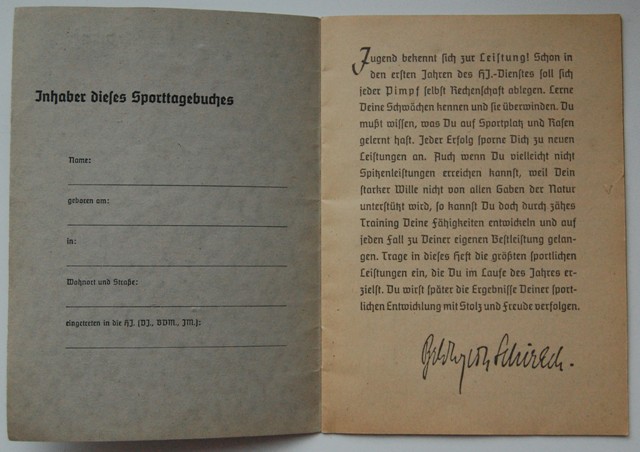 Inhaber dieses Sporttagebuches
Name:
geboren am:
in:
Wohnort und Straße:
eingetreten in die HJ. (DJ., BDM., JM.):
Jugend bekennt sich zur Leistung! Schon in
den ersten Jahren des HJ.-Dienstes soll sich
jeder Pimpf selbst Rechenschaft ablegen. Lerne
Deine Schwächen kennen und sie überwinden. Du
mußt wissen, was Du auf Sportplatz und Rasen
gelernt hast. Jeder Erfolg sporne Dich zu neuen
Leistungen an. Auch wenn Du vielleicht nicht
Spitzenleistungen erreichen kannst, weil Dein
starker Wille nicht von allen Gaben der Natur
unterstützt wird, so kannst Du doch durch zähes
Training Deine Fähigkeiten entwickeln und auf
jeden Fall zu Deiner eigenen Bestleistung gelan-
gen. Trage in dieses Heft die größten sportlichen
Leistungen ein, die Du im Laufe des Jahres er-
zielst. Du wirst später die Ergebnisse Deiner sport-
lichen Entwicklung mit Stolz und Freude verfolgen.
Baldur von Schirach.